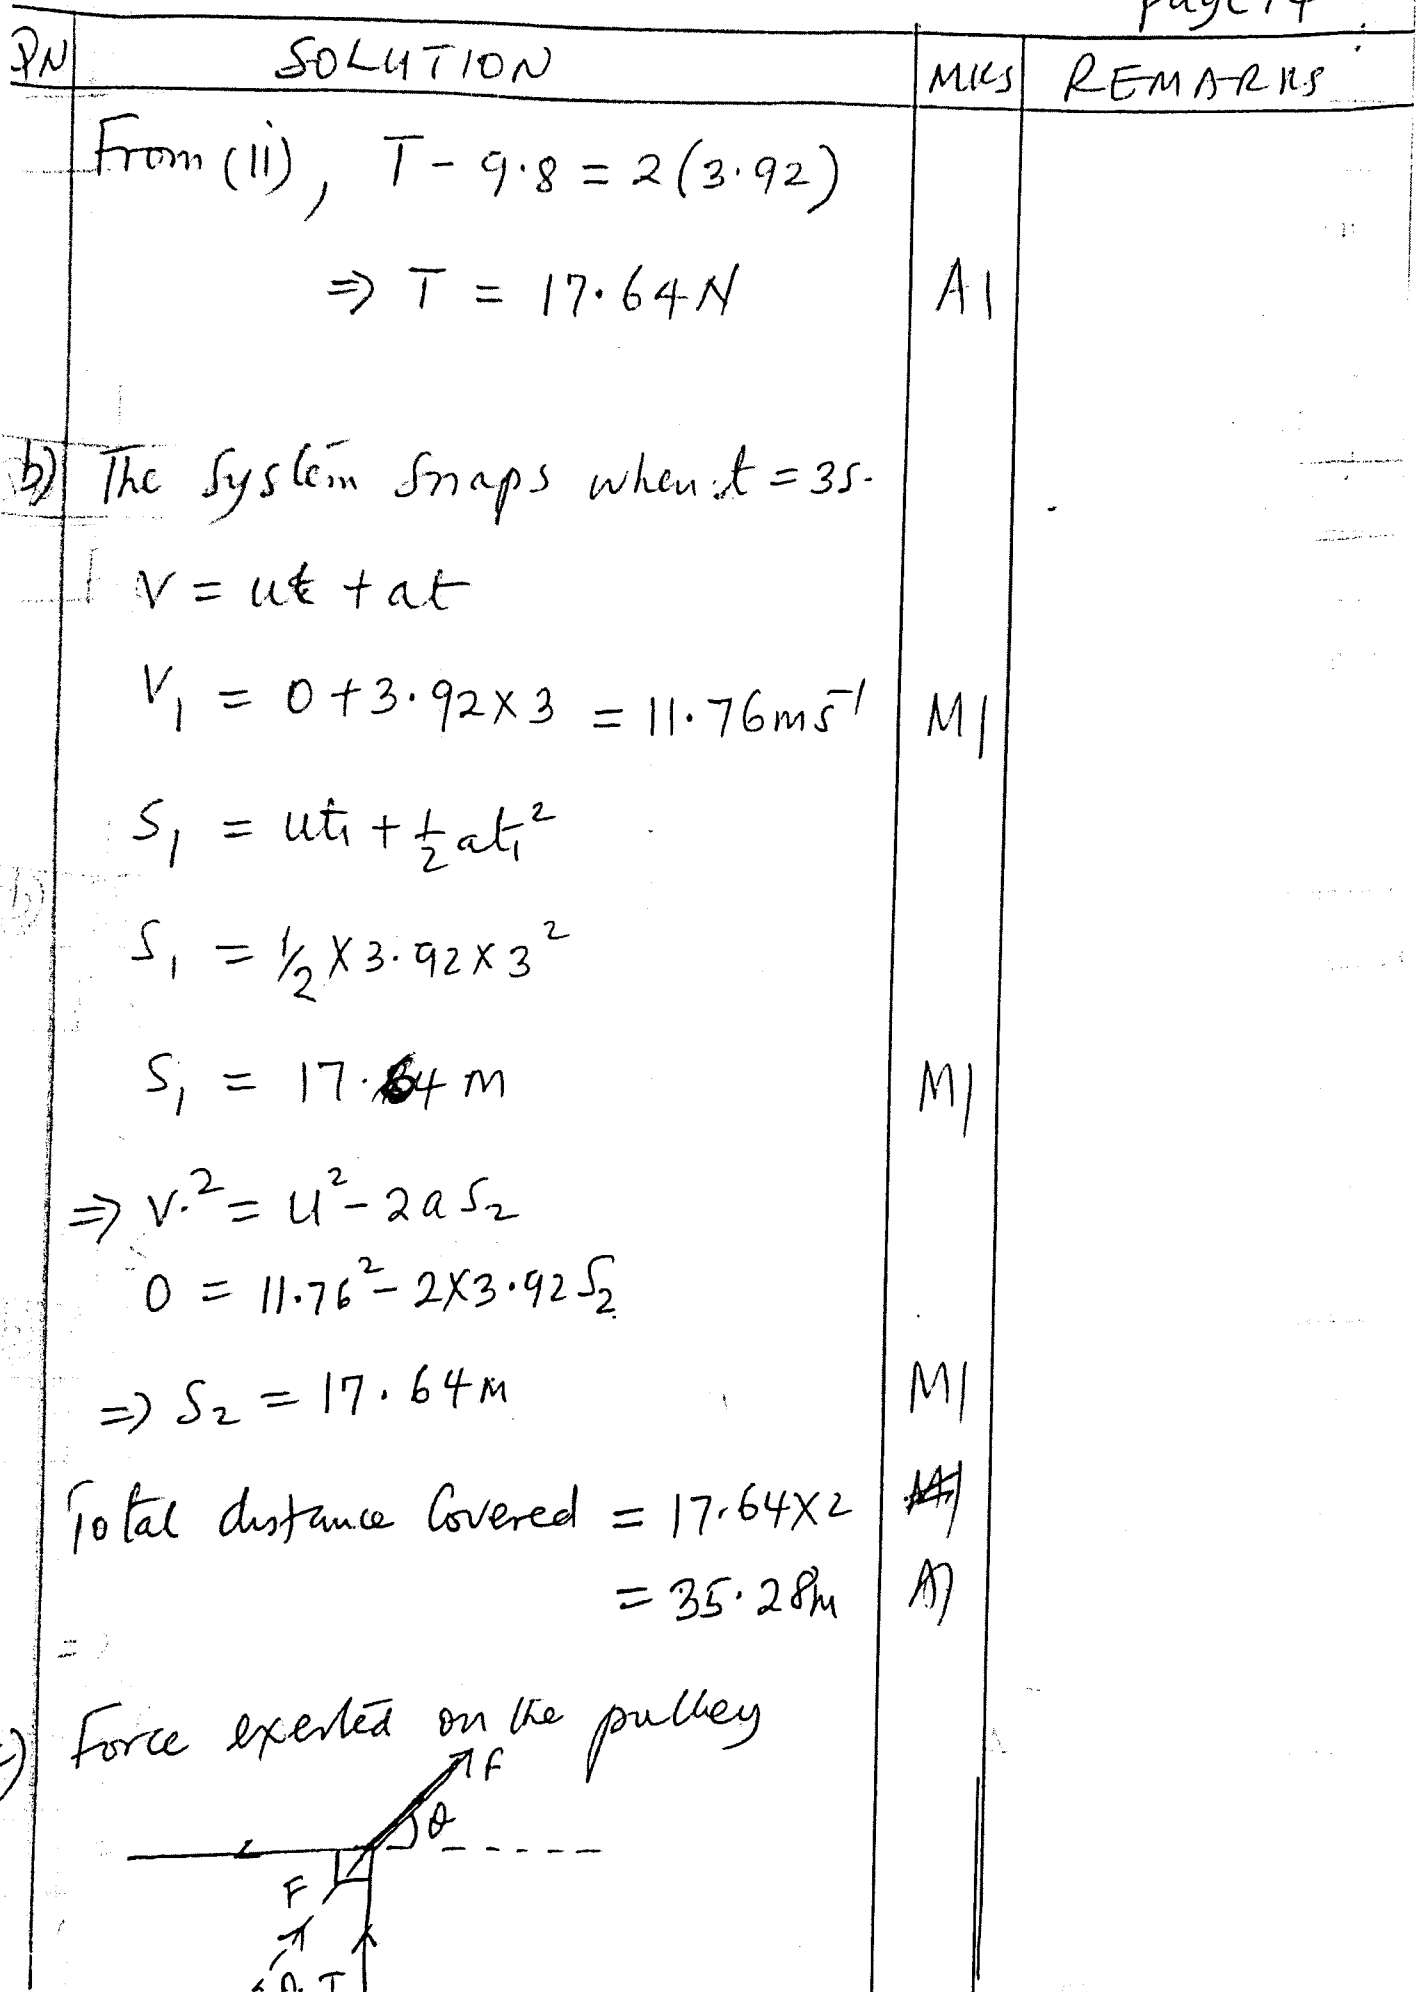 page 14
QN SOLUTION MKS REMARKS
From (ii), T - 9.8 = 2(3.92)
⇒ T = 17.64N A1
b) The system snaps when t = 3s.
V = ut + at
V₁ = 0 + 3.92 × 3 = 11.76ms⁻¹ M1
S₁ = ut₁ + ½at₁²
S₁ = ½ × 3.92 × 3²
S₁ = 17.64 m M1
⇒ V² = u² - 2aS₂
0 = 11.76² - 2×3.92 S₂
⇒ S₂ = 17.64m M1
Total distance Covered = 17.64×2
= 35.28m A1
c) Force exerted on the pulley
F
θ
F
T